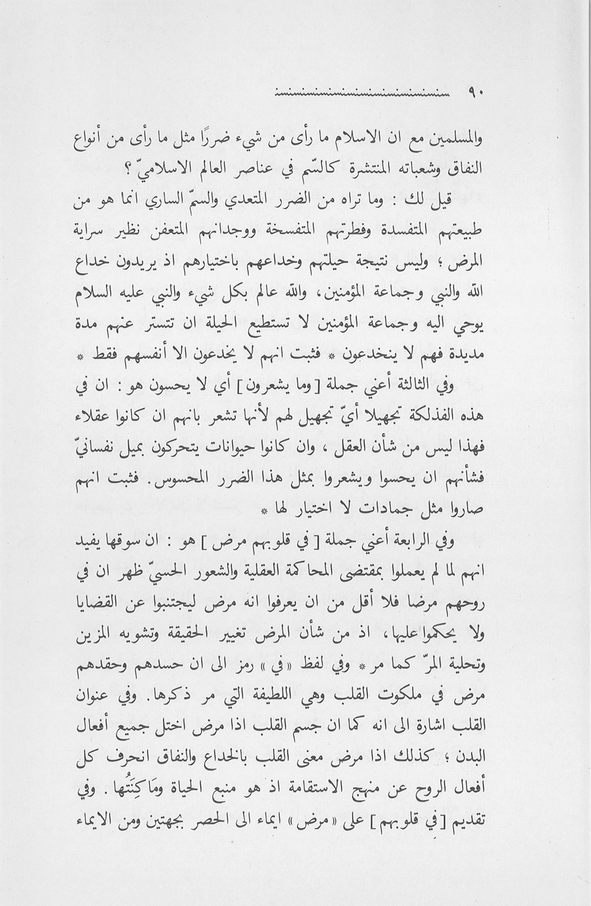 ٩٠
والمسلمين مع ان الاسلام ما رأى من شيء ضررًا مثل ما رأى من أنواع
النفاق وشعباته المنتشرة كالسّم في عناصر العالم الاسلاميّ ؟
قيل لك : وما تراه من الضرر المتعدي والسمّ الساري انما هو من
طبيعتهم المتفسدة وفطرتهم المتفسخة ووجدانهم المتعفن نظير سراية
المرض ؛ وليس نتيجة حيلتهم وخداعهم باختيارهم اذ يريدون خداع
الله والنبي وجماعة المؤمنين، والله عالم بكل شيء والنبي عليه السلام
يوحي اليه وجماعة المؤمنين لا تستطيع الحيلة ان تتستر عنهم مدة
مديدة فهم لا ينخدعون * فثبت انهم لا يخدعون الا أنفسهم فقط *
وفي الثالثة أعني جملة [وما يشعرون] أي لا يحسون هو : ان في
هذه الفذلكة تجهيلا أيّ تجهيل لهم لأنها تشعر بانهم ان كانوا عقلاء
فهذا ليس من شأن العقل ، وان كانوا حيوانات يتحركون بميل نفسانيّ
فشأنهم ان يحسوا ويشعروا بمثل هذا الضرر المحسوس. فثبت انهم
صاروا مثل جمادات لا اختيار لها *
وفي الرابعة أعني جملة [في قلوبهم مرض] هو : ان سوقها يفيد
انهم لما لم يعملوا بمقتضى المحاكمة العقلية والشعور الحسيّ ظهر ان في
روحهم مرضا فلا أقل من ان يعرفوا انه مرض ليجتنبوا عن القضايا
ولا يحكموا عليها، اذ من شأن المرض تغيير الحقيقة وتشويه المزين
وتحلية المرّ كما مر* وفي لفظ «في» رمز الى ان حسدهم وحقدهم
مرض في ملكوت القلب وهي اللطيفة التي مر ذكرها. وفي عنوان
القلب اشارة الى انه كما ان جسم القلب اذا مرض اختل جميع أفعال
البدن ؛ كذلك اذا مرض معنى القلب بالخداع والنفاق انحرف كل
أفعال الروح عن منهج الاستقامة اذ هو منبع الحياة ومَاكِنَتُها. وفي
تقديم [في قلوبهم] على «مرض» ايماء الى الحصر بجهتين ومن الايماء